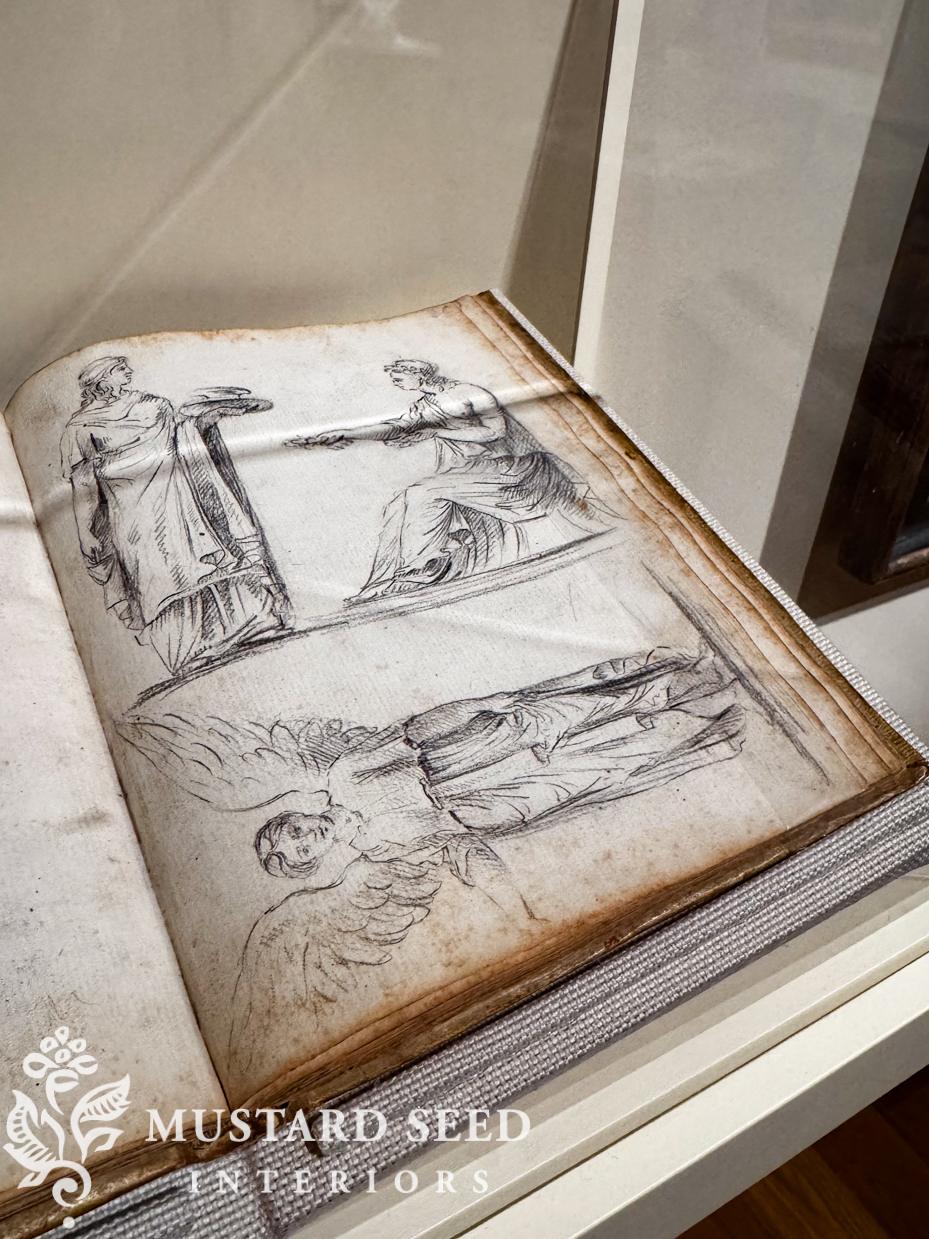 MUSTARD SEED
INTERIORS